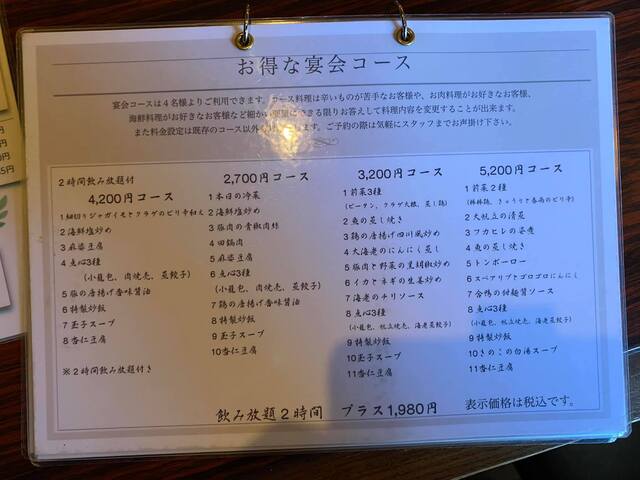 お得な宴会コース
宴会コースは4名様よりご利用できます。コース料理は辛いものが苦手なお客様や、お肉料理がお好きなお客様、
海鮮料理がお好きなお客様など細かい要望にできる限りお答えして料理内容を変更することが出来ます。
また料金設定は既存のコース以外 います。ご予約の際は気軽にスタッフまでお声掛け下さい。
2時間飲み放題付
4,200円コース
1細切りジャガイモとクラゲのピリ辛和え
2海鮮塩炒め
3麻婆豆腐
4点心3種
(小籠包、肉焼売、菜餃子)
5豚の唐揚げ香味醤油
6特製炒飯
7玉子スープ
8杏仁豆腐
※2時間飲み放題付き
2,700円コース
1本日の冷菜
2海鮮塩炒め
3豚肉の青椒肉絲
4回鍋肉
5麻婆豆腐
6点心3種
(小籠包、肉焼売、菜餃子)
7鶏の唐揚げ香味醤油
8特製炒飯
9玉子スープ
10杏仁豆腐
3,200円コース
1前菜3種
(ピータン、クラゲ大根、蒸し鶏)
2魚の蒸し焼き
3鶏の唐揚げ四川風炒め
4大海老のにんにく蒸し
5豚肉と野菜の黒胡椒炒め
6イカとネギの生姜炒め
7海老のチリソース
8点心3種
(小籠包、帆立焼売、海老菜餃子)
9特製炒飯
10玉子スープ
11杏仁豆腐
5,200円コース
1前菜2種
(棒棒鶏、きゅうりと春雨のピリ辛)
2大帆立の清蒸
3フカヒレの姿煮
4魚の蒸し焼き
5トンポーロー
6スペアリブとゴロゴロにんにく
7合鴨の甜麺醤ソース
8点心3種
(小籠包、帆立焼売、海老菜餃子)
9特製炒飯
10きのこの白湯スープ
11杏仁豆腐
飲み放題2時間 プラス1,980円
表示価格は税込です。